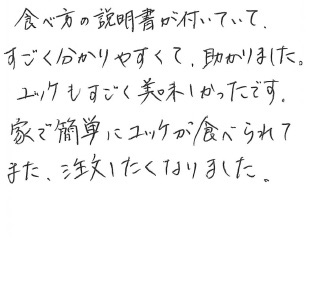 食べ方の説明書が付いていて、
すごく分かりやすくて、助かりました。
ユッケもすごく美味しかったです。
家で簡単にユッケが食べられて
また、注文したくなりました。